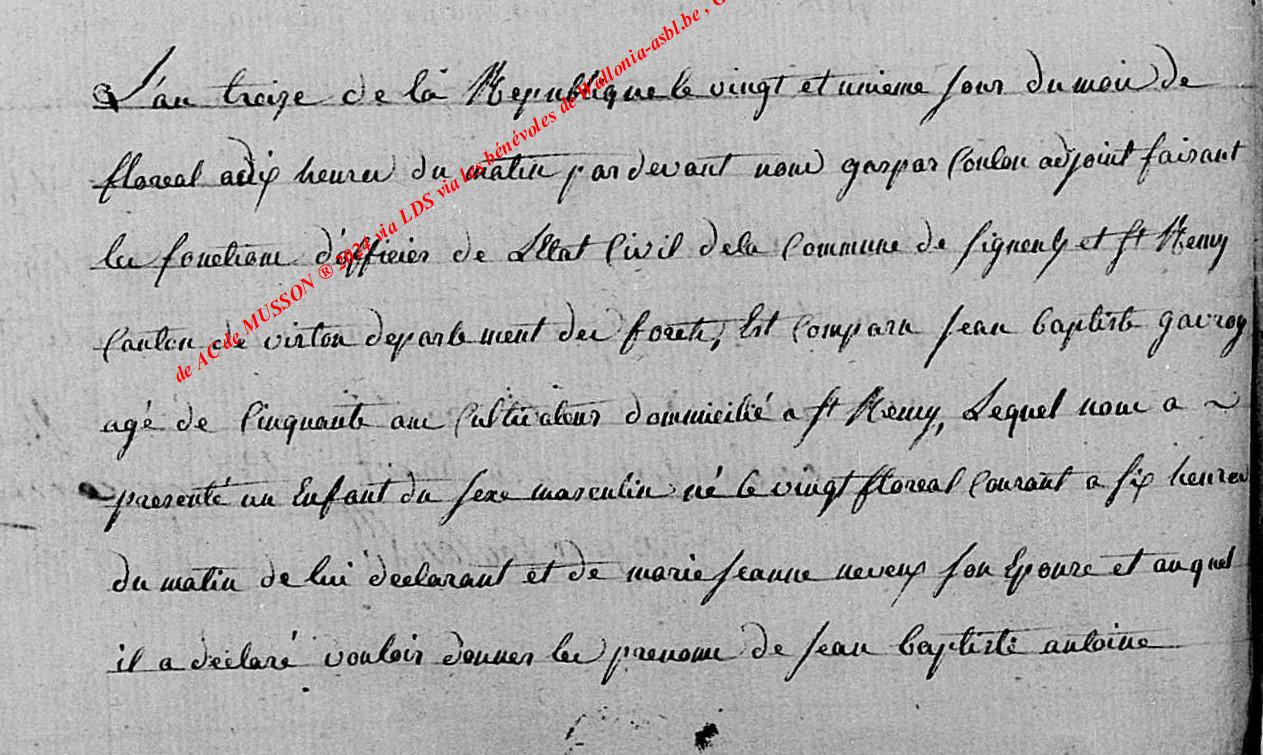 L'an treize de la Republique le vingt et unieme jour du mois de
floreal a dix heures du matin par devant nous gaspar Coulon adjoint faisant
les fonctions d'officier de L'Etat Civil de la Commune de Signeulx et St Remy
Canton de virton departement des forets, Est Comparu jean baptiste gavroy
agé de Cinquante ans Cultivateur dommicilié a St Remy, Lequel nous a
presenté un Enfant du sexe masculin né le vingt floreal Courant a six heures
du matin de lui declarant et de marie jeanne neveux son Epouse et auquel
il a declaré vouloir donner les prenoms de jean baptiste antoine
de AC de MUSSON ® 2024 via LDS via les bénévoles de Wallonia-asbl.be ,